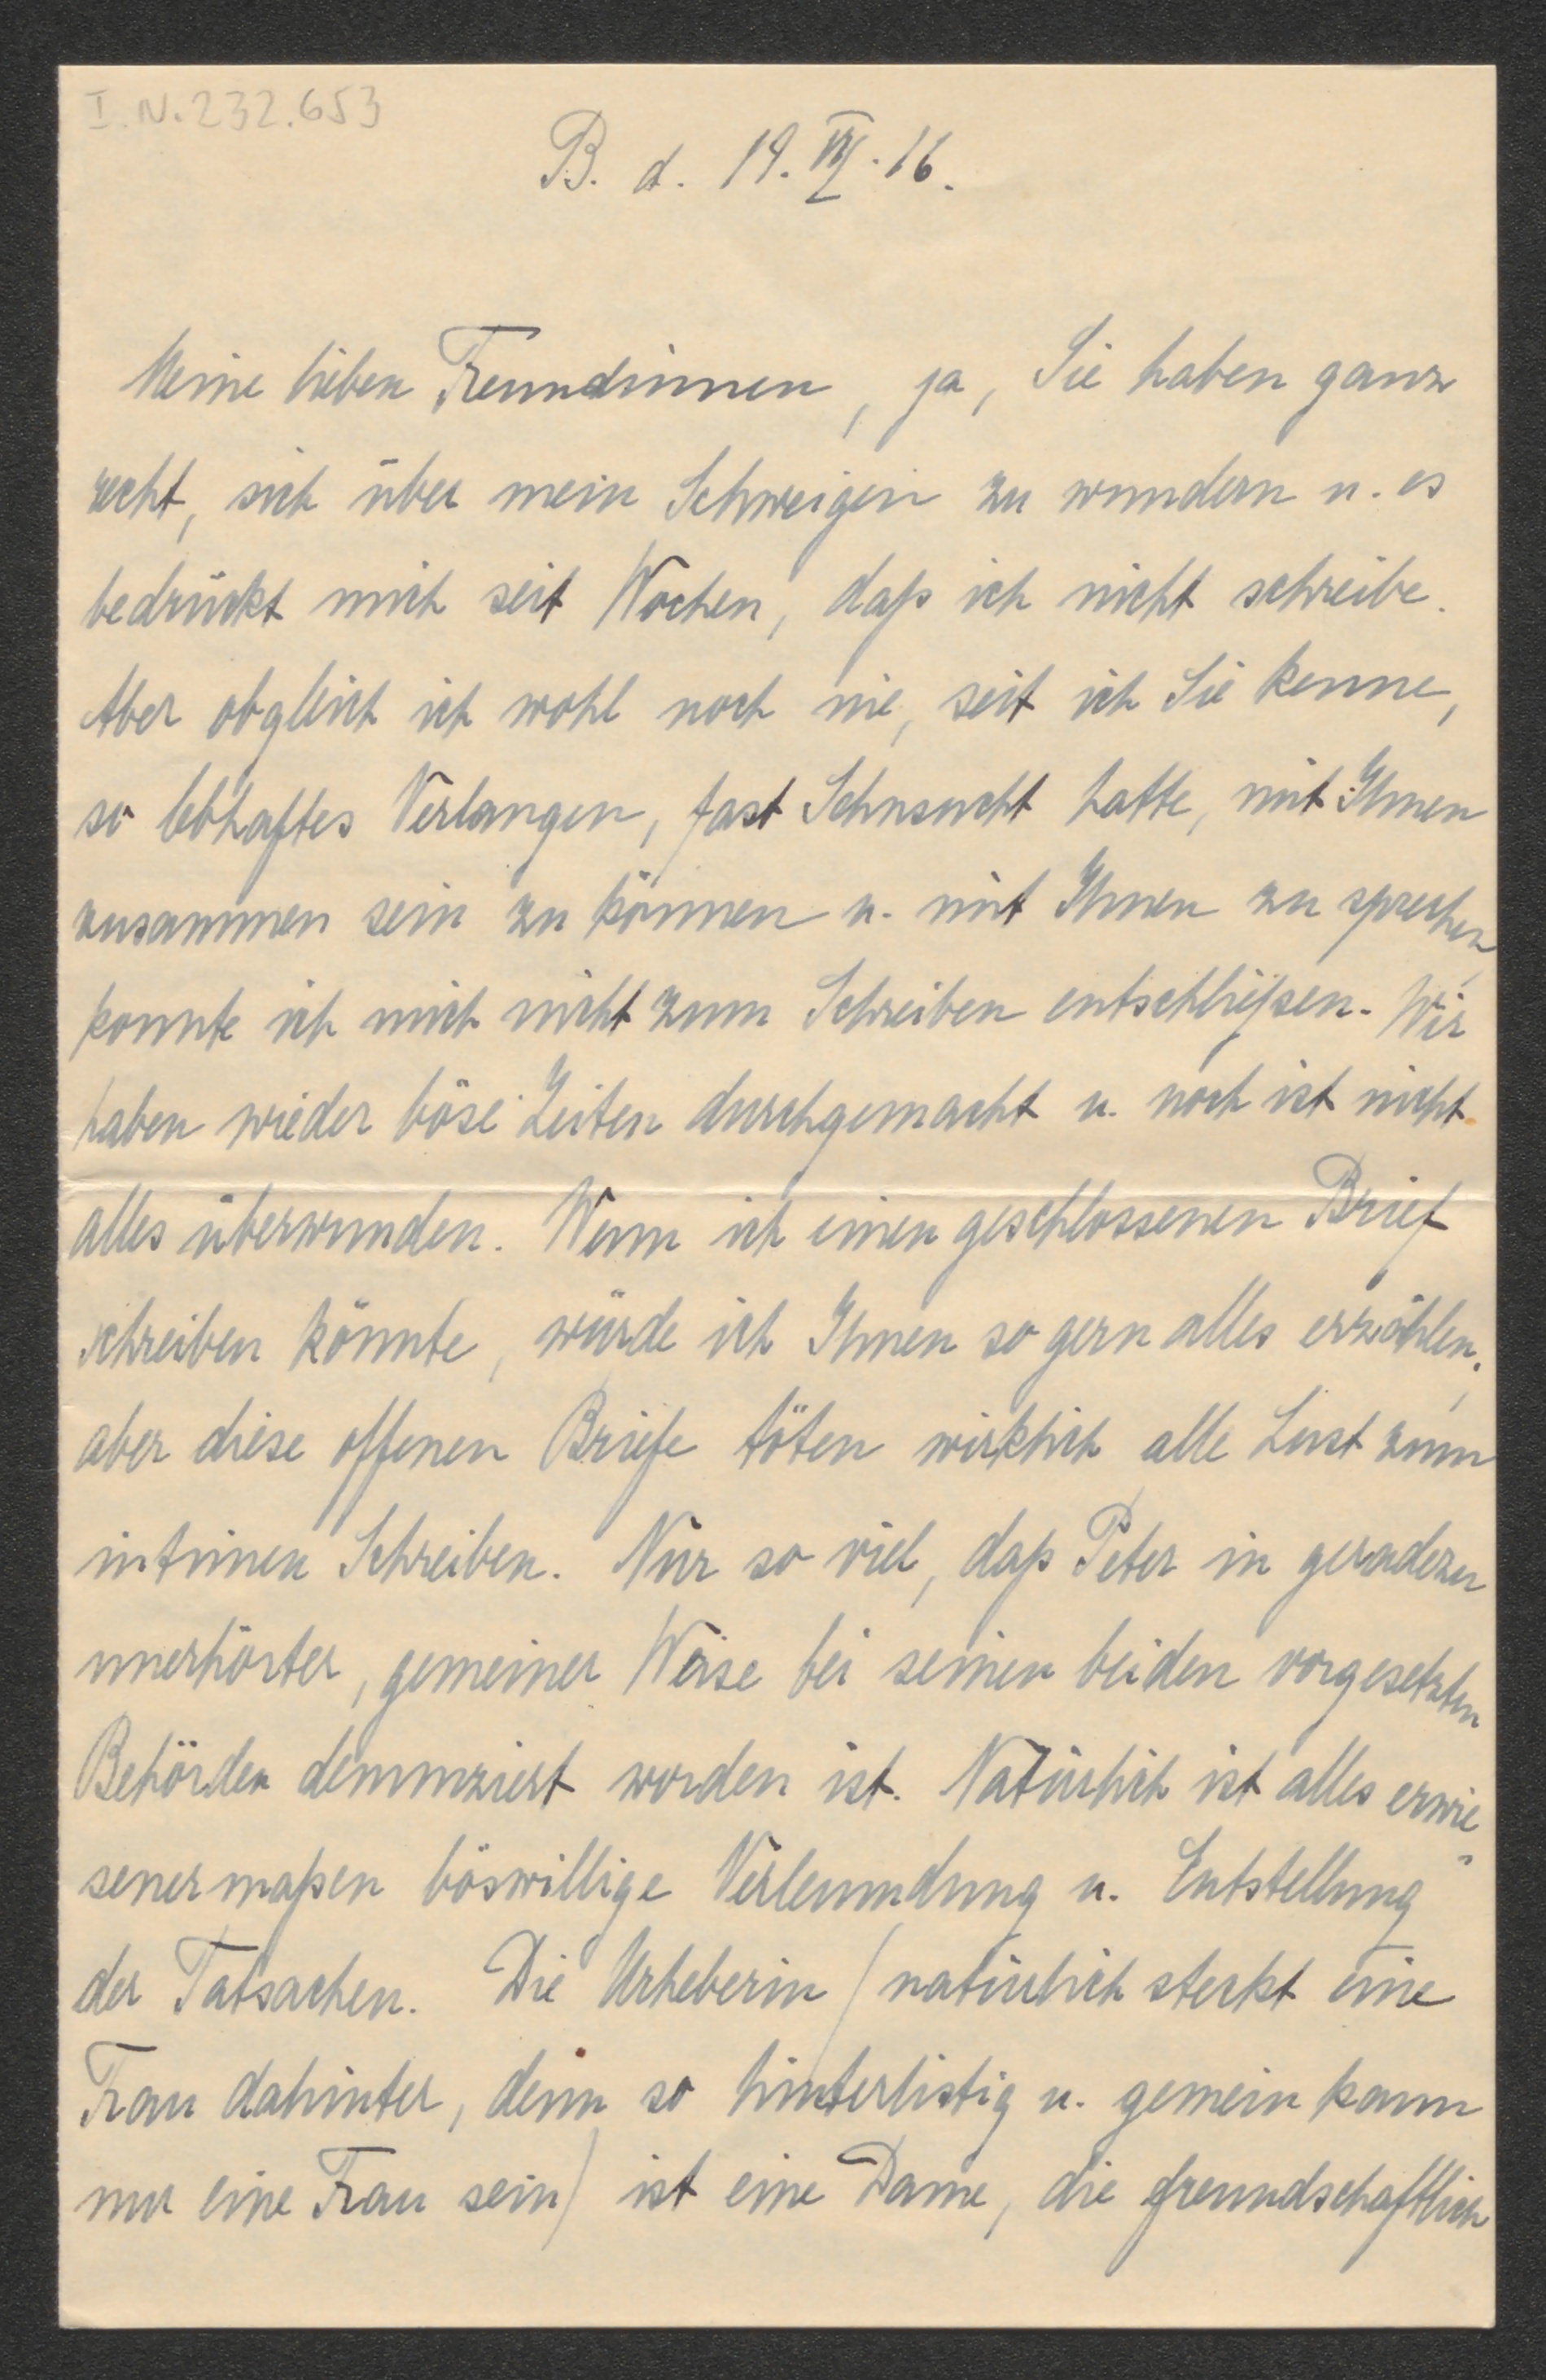 I.N.232.653
B. d. 19. VII. 16.
Meine lieben Freundinnen, ja, Sie haben ganz
recht, sich über mein Schweigen zu wundern u. es
bedrückt mich seit Wochen, daß ich nicht schreibe.
Aber obgleich ich wohl noch nie, seit ich Sie kenne,
so lebhaftes Verlangen, fast Sehnsucht hatte, mit Ihnen
zusammen sein zu können u. mit Ihnen zu sprechen,
konnte ich mich nicht zum Schreiben entschließen. Wir
haben wieder böse Zeiten durchgemacht u. noch ist nicht
alles überwunden. Wenn ich einen geschlossenen Brief
schreiben könnte, würde ich Ihnen so gern alles erzählen,
aber diese offenen Briefe töten wirklich alle Lust zum
intimen Schreiben. Nur so viel, daß Peter in geradezu
unerhörter, gemeiner Weise bei seinen beiden vorgesetzten
Behörden denunziert worden ist. Natürlich ist alles erwie-
senermaßen böswillige Verleumdung u. Entstellung
der Tatsachen. Die Urheberin (natürlich steckt eine
Frau dahinter, denn so hinterlistig u. gemein kann
nur eine Frau sein) ist eine Dame, die freundschaftlich